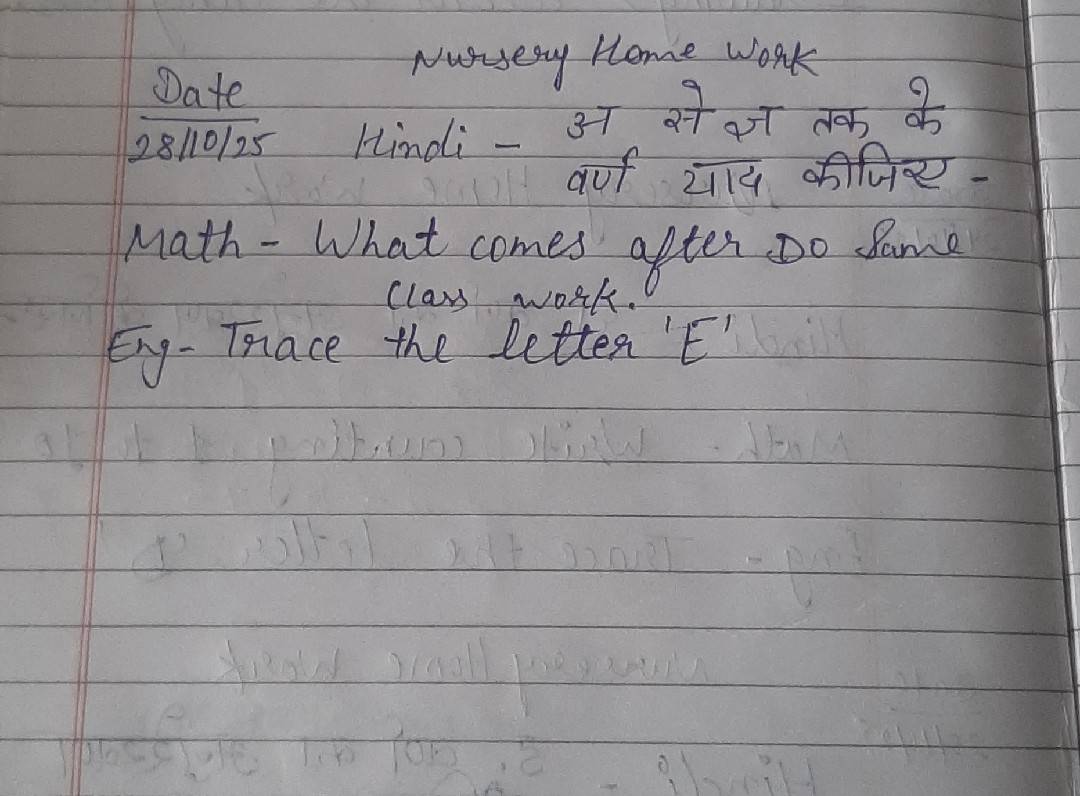 Nursery Home Work
Date
28/10/25 Hindi - अ से ज्ञ तक के
वर्ण याद कीजिए -
Math - What comes after Do Same
Class work.
Eng - Trace the letter 'E'